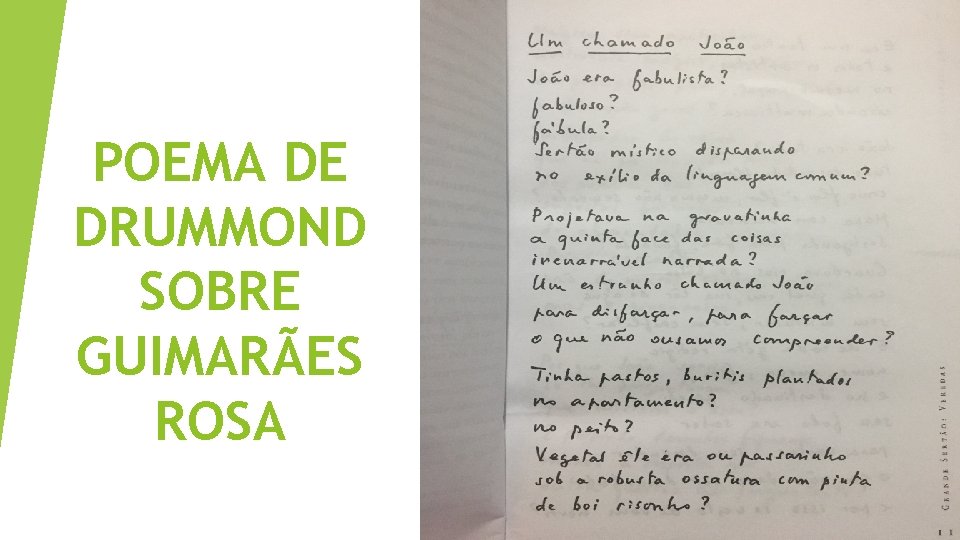 POEMA DE
DRUMMOND
SOBRE
GUIMARÃES
ROSA
Um chamado João
João era fabulista?
fabuloso?
fábula?
Sertão místico disparando
no exílio da linguagem comum?
Projetava na gravatinha
a quinta face das coisas
inenarrável narrada?
Um estranho chamado João
para disfarçar, para farçar
o que não ousamos compreender?
Tinha pastos, buritis plantados
no apartamento?
no peito?
Vegetal êle era ou passarinho
sob a robusta ossatura com pinta
de boi risonho?
GRANDE SERTÃO: VEREDAS